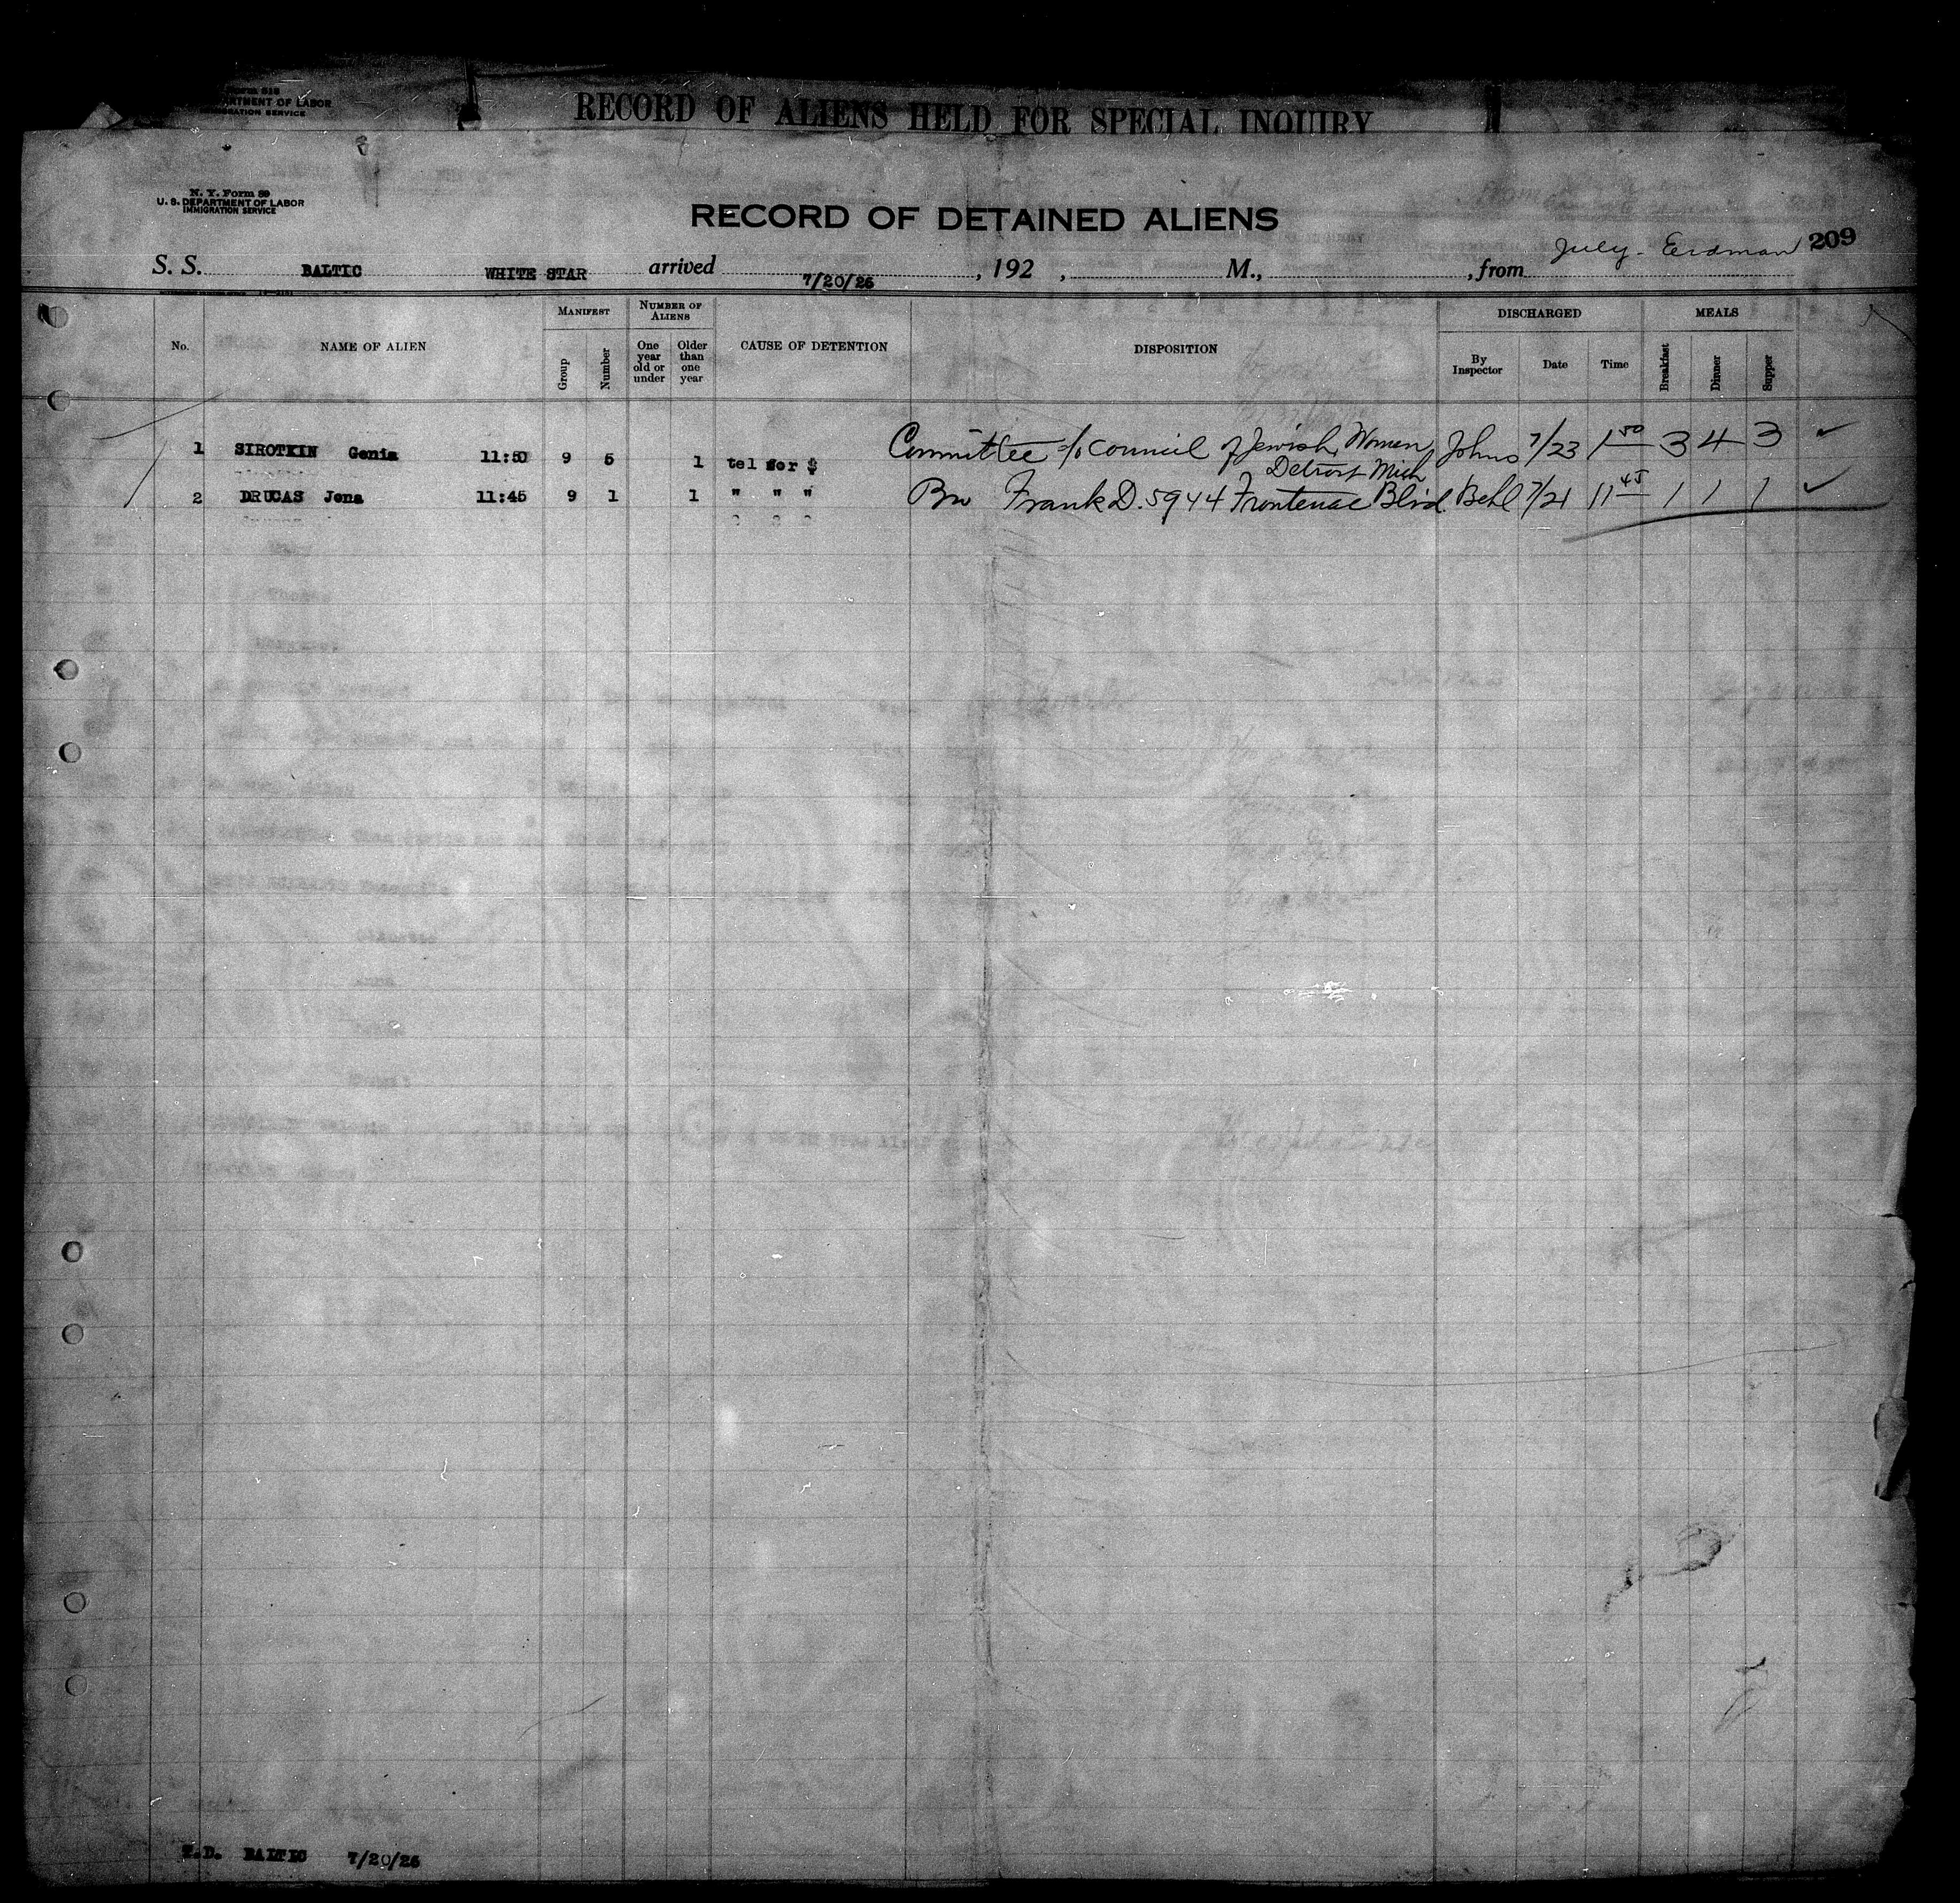 RECORD OF ALIENS HELD FOR SPECIAL INQUIRY
N. Y. Form 89
U. S. DEPARTMENT OF LABOR
IMMIGRATION SERVICE
RECORD OF DETAINED ALIENS
July - Erdman 209
S. S. BALTIC WHITE STAR arrived 7/20/26, 192 , M., , from
No. NAME OF ALIEN MANIFEST Group Number NUMBER OF ALIENS One year old or under Older than one year CAUSE OF DETENTION DISPOSITION DISCHARGED By Inspector Date Time MEALS Breakfast Dinner Supper
1 SIROTKIN Genia 11:50 9 5 1 tel for $ Committee c/o Council of Jewish Women Johns 7/23 1 50 3 4 3
Detroit Mich
2 DRUCAS Jona 11:45 9 1 1 " " " Bro Frank D. 5944 Frontenac Blvd. Behl 7/21 11 45 1 1 1
T.D. BALTIC 7/20/26